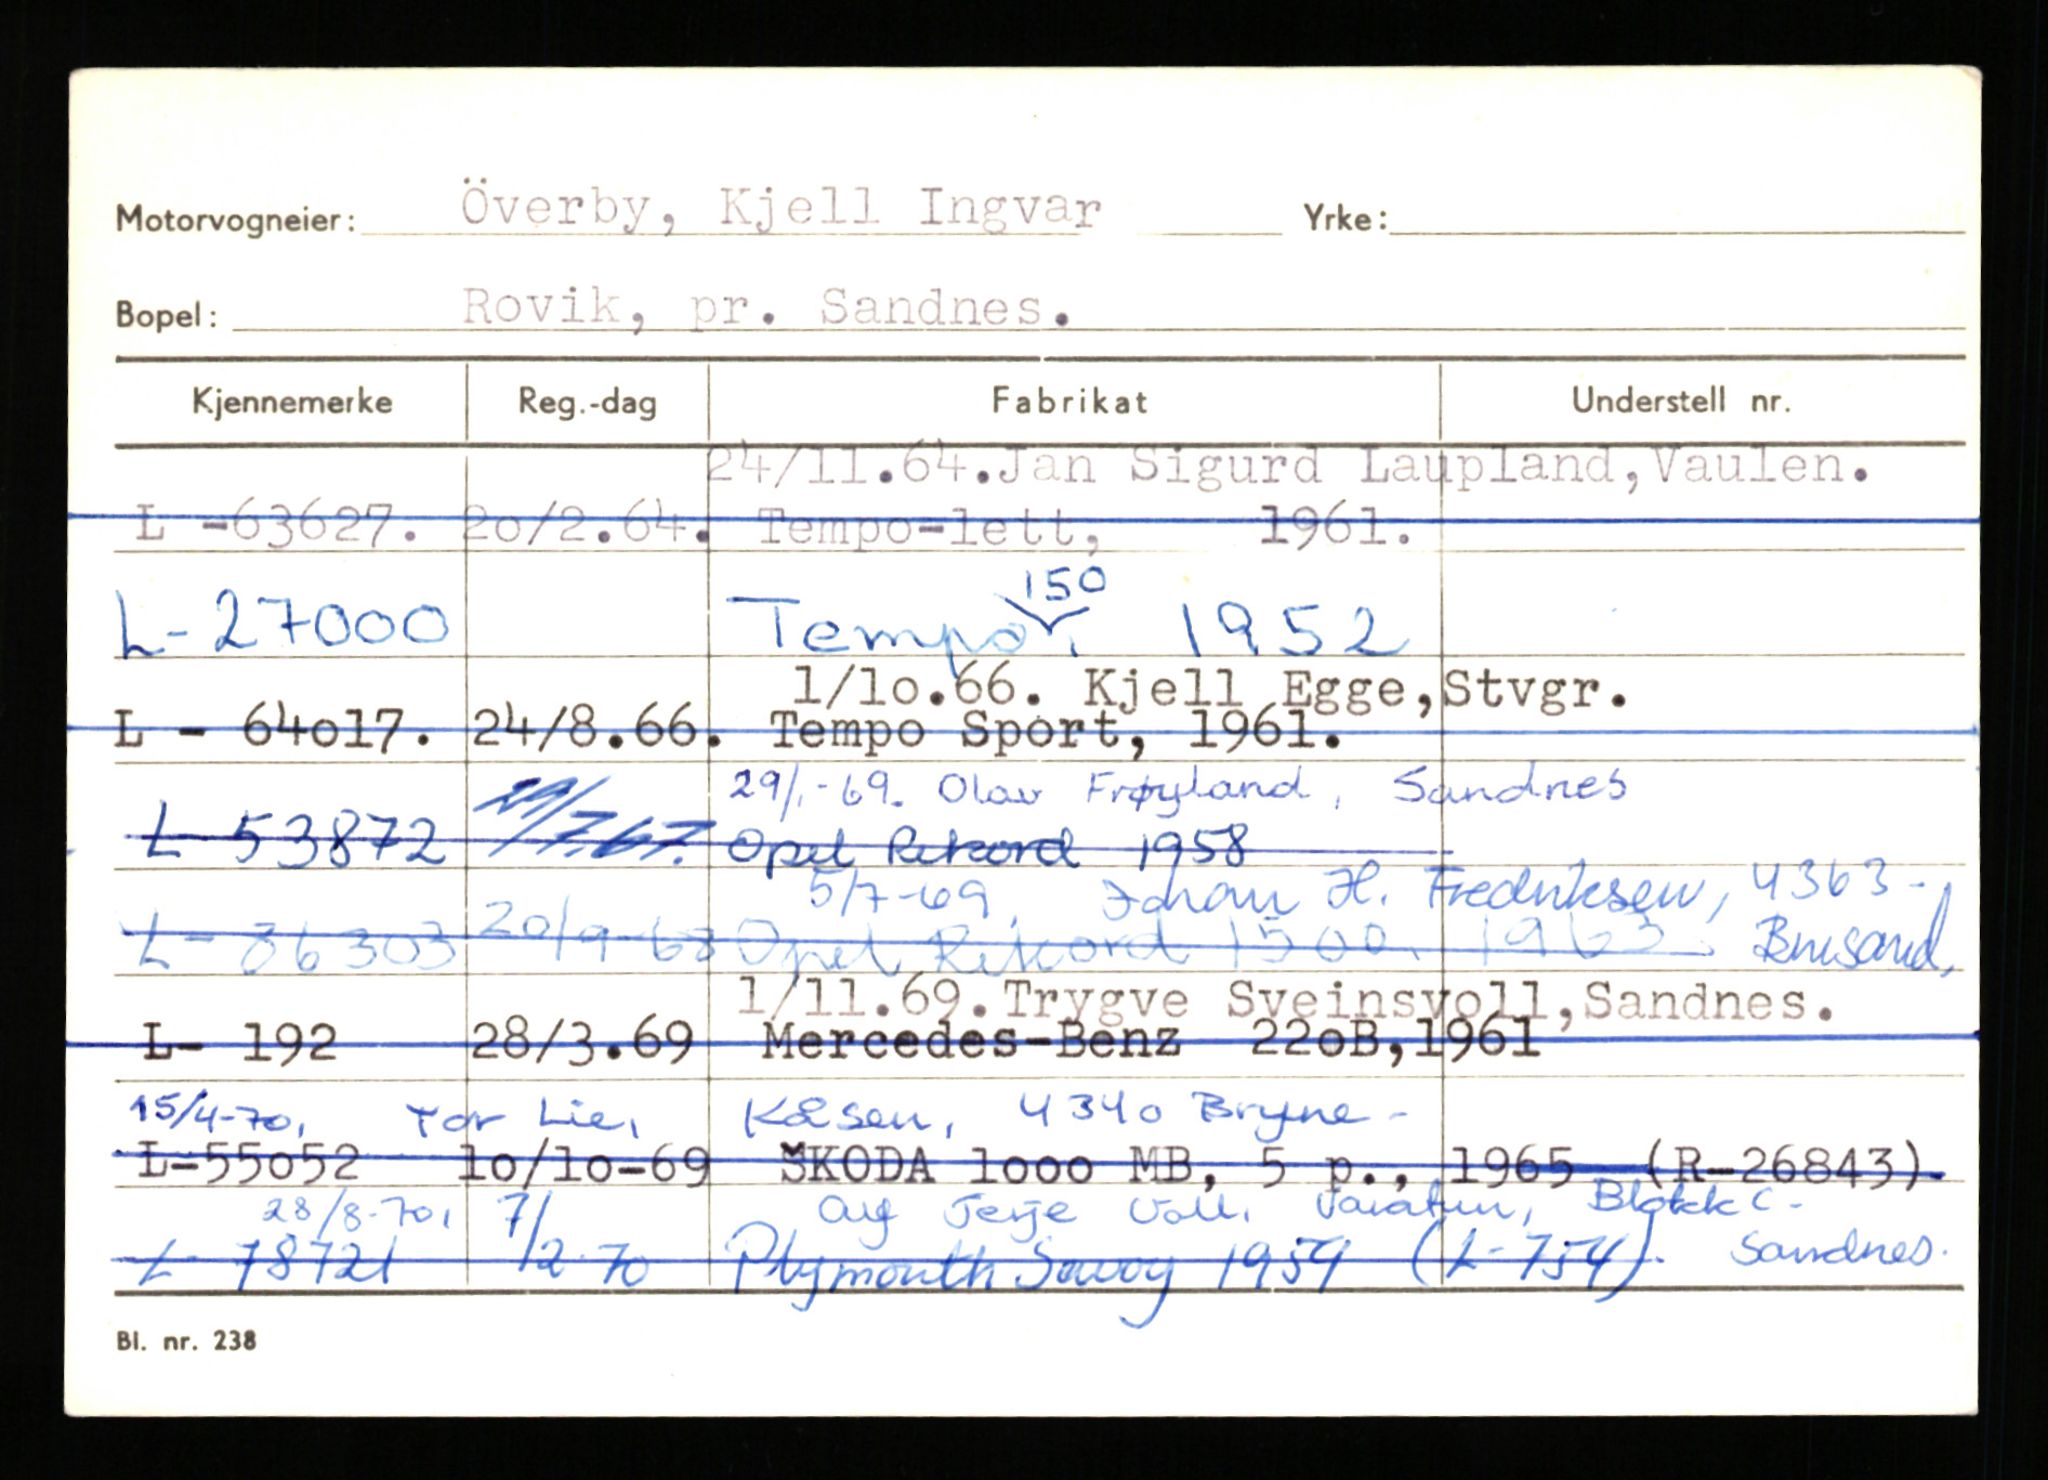 Motorvogneier: Överby, Kjell Ingvar Yrke:
Bopel: Rovik, pr. Sandnes.
Kjennemerke Reg.-dag Fabrikat Understell nr.
24/11.64.Jan Sigurd Laupland,Vaulen.
L -63627. 2o/2.64. Tempo-lett, 1961.
150
L-27000 Tempo, 1952
1/1o.66. Kjell Egge,Stvgr.
L - 64o17. 24/8.66. Tempo Sport, 1961.
29/1-69. Olav Frøyland, Sandnes
L 53872 /7.67. Opel Rekord 1958
5/7-69, Johan H. Fredriksen, 4363-
L- 86303 20/9-68 Opel Rekord 1500, 1963. Brusand,
1/11.69.Trygve Sveinsvoll,Sandnes.
L- 192 28/3.69 Mercedes-Benz 22oB,1961
15/4-70, Tor Lie, Kåsen, 4340 Bryne-
L-55o52 1o/1o-69 ŠKODA 1ooo MB, 5 p., 1965 (R-26843)
28/8-70, 7/ Terje Voll, Blokk C-
L- 78721 2-70 Plymouth Savoy 1959 (L-754). Sandnes.
Bl. nr. 238